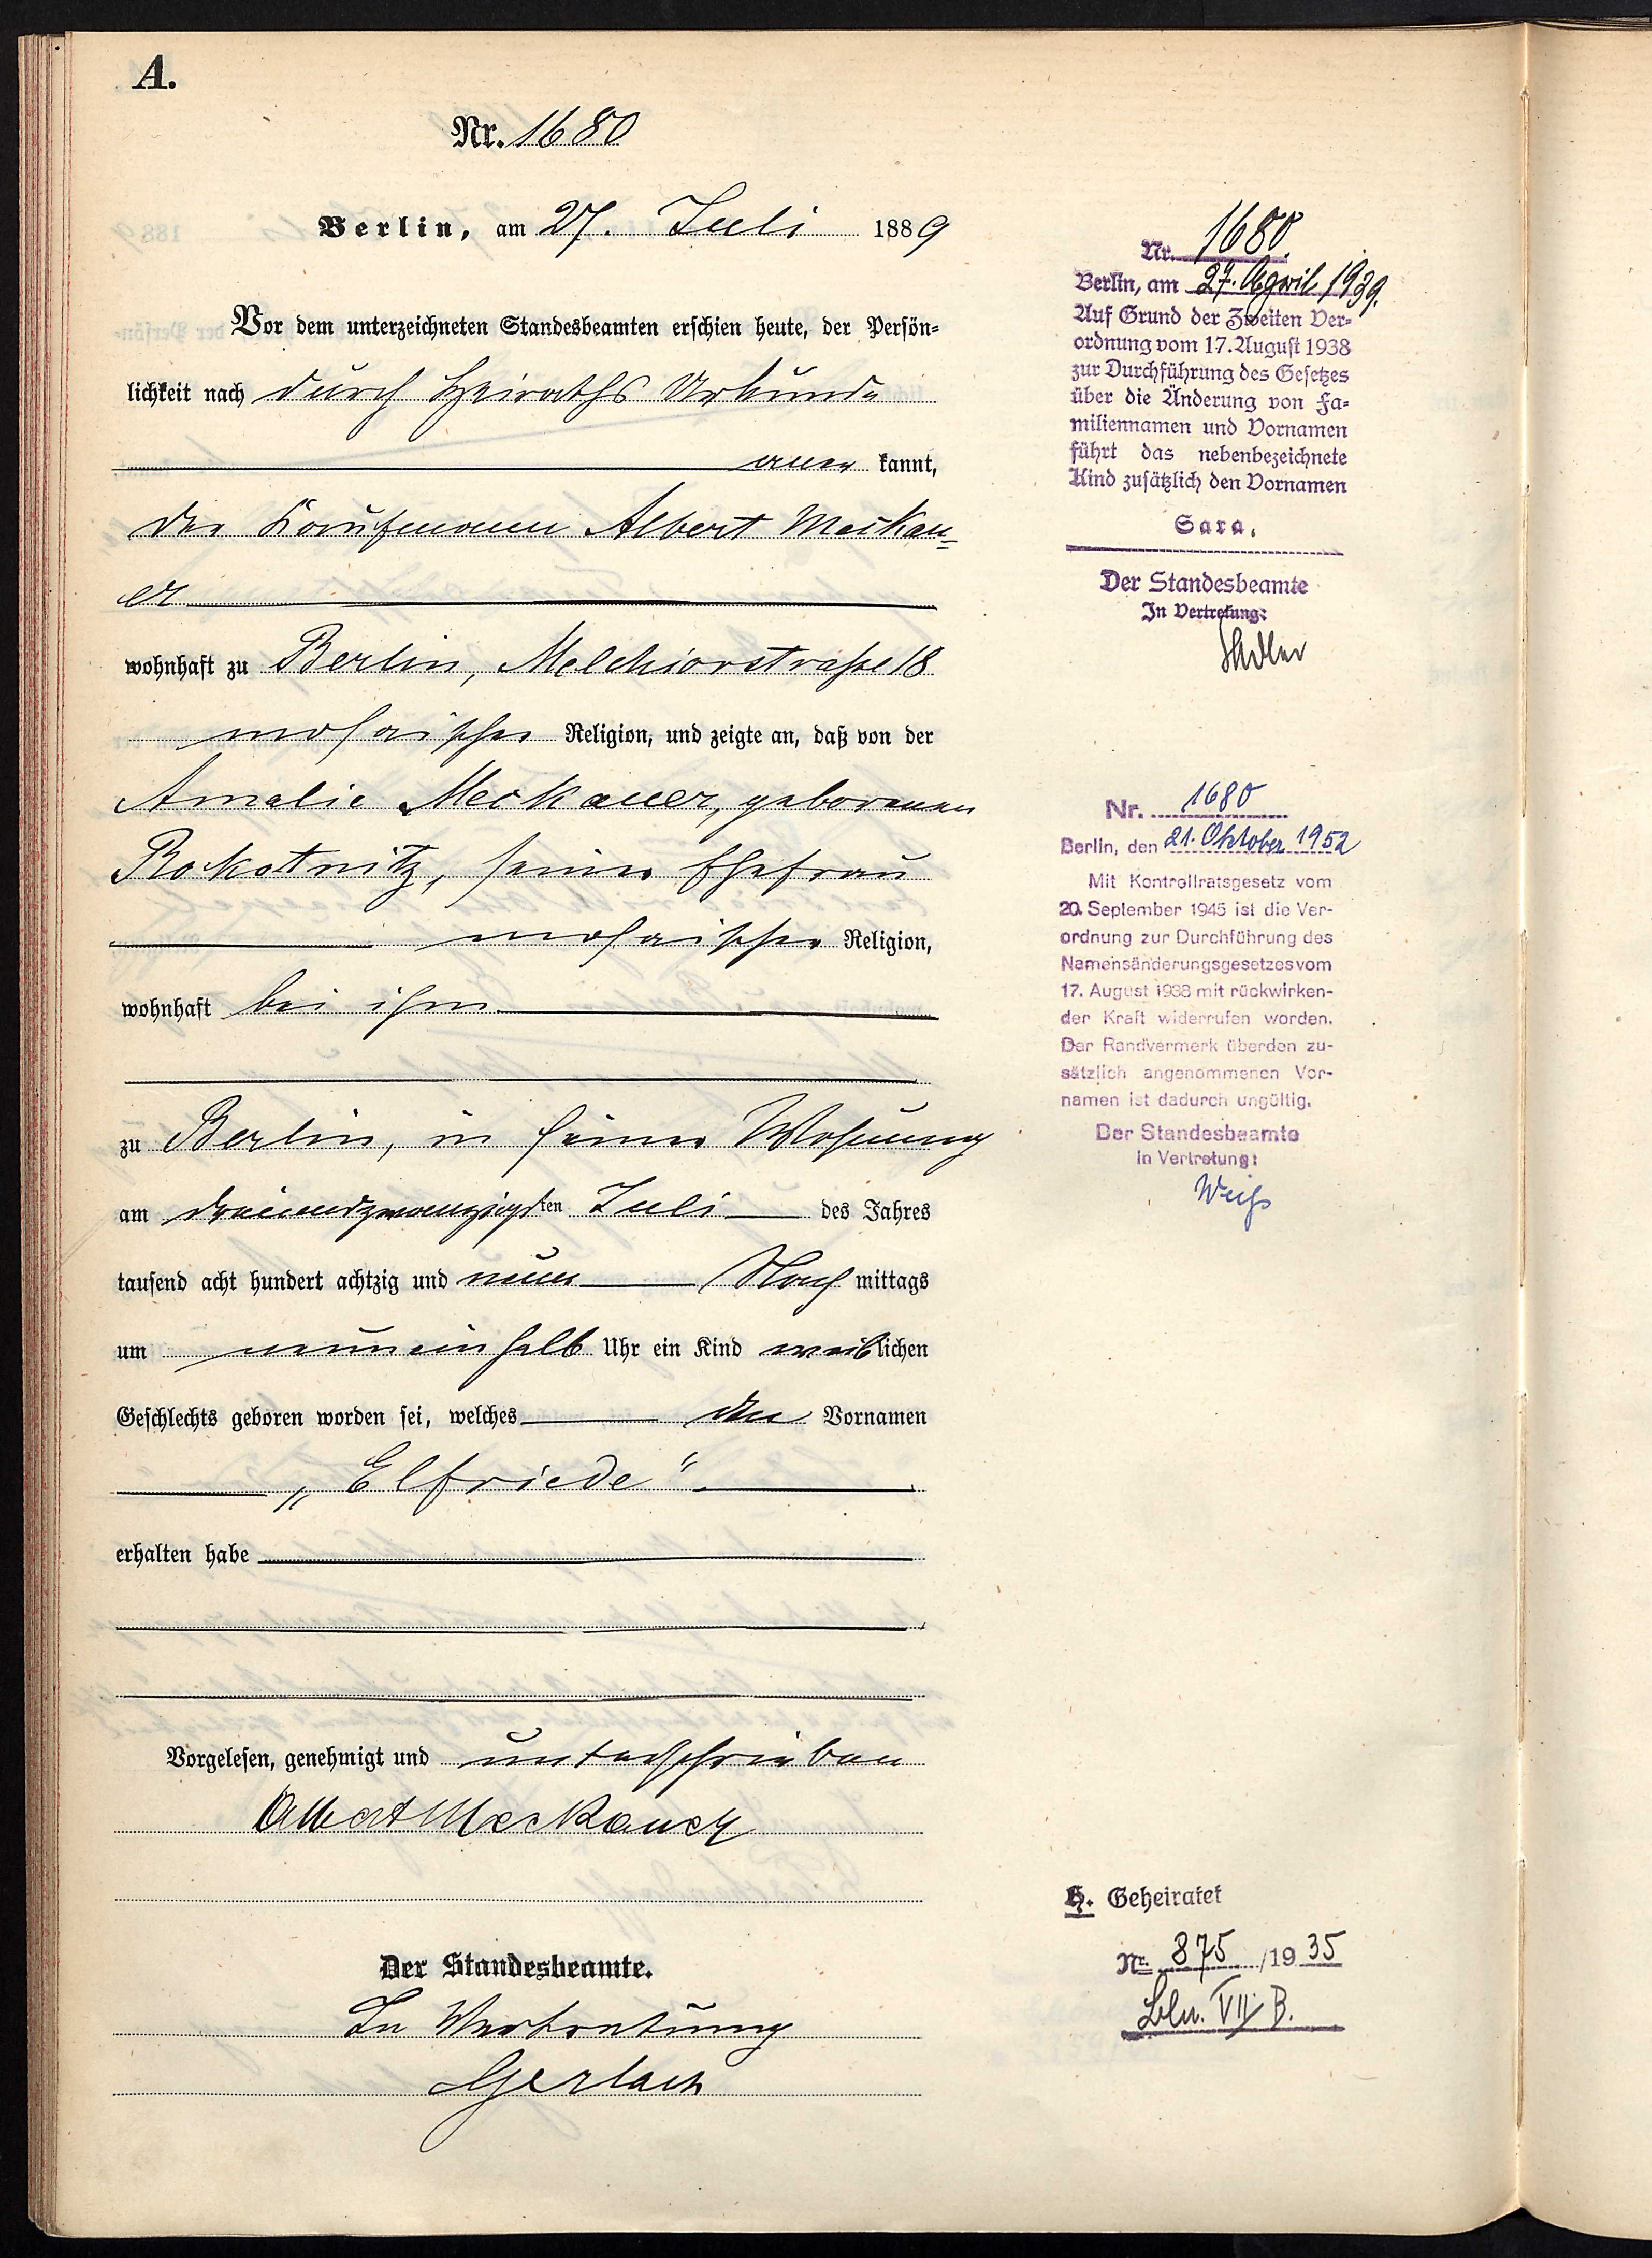 A.
Nr. 1680
Berlin, am 27. Juli 1889
Vor dem unterzeichneten Standesbeamten erschien heute, der Persön=
lichkeit nach durch Heiraths Urkunde
aner kannt,
der Kaufmann Albert Meckau=
er
wohnhaft zu Berlin, Melchiorstraße 18
mosaischer Religion, und zeigte an, daß von der
Amalie Meckauer, geborenen
Rokotnitz, seiner Ehefrau
mosaischer Religion,
wohnhaft bei ihm
zu Berlin, in seiner Wohnung
am dreiundzwanzigsten Juli des Jahres
tausend acht hundert achtzig und neun Nach mittags
um neun einhalb Uhr ein Kind weiblichen
Geschlechts geboren worden sei, welches den Vornamen
„Elfriede“
erhalten habe
Vorgelesen, genehmigt und unterschrieben
Albert Meckauer
Der Standesbeamte.
In Vertretung
Gerlach
Nr. 1680.
Berlin, am 27. April 1939.
Auf Grund der Zweiten Ver=
ordnung vom 17. August 1938
zur Durchführung des Gesetzes
über die Änderung von Fa=
miliennamen und Vornamen
führt das nebenbezeichnete
Kind zusätzlich den Vornamen
Sara.
Der Standesbeamte
In Vertretung:
Nr. 1680
Berlin, den 21. Oktober 1952
Mit Kontrollratsgesetz vom
20. September 1945 ist die Ver-
ordnung zur Durchführung des
Namensänderungsgesetzes vom
17. August 1938 mit rückwirken-
der Kraft widerrufen worden.
Der Randvermerk über den zu-
sätzlich angenommenen Vor-
namen ist dadurch ungültig.
Der Standesbeamte
In Vertretung:
Weiß
H. Geheiratet
Nr. 875 /1935
Bln. VII B.